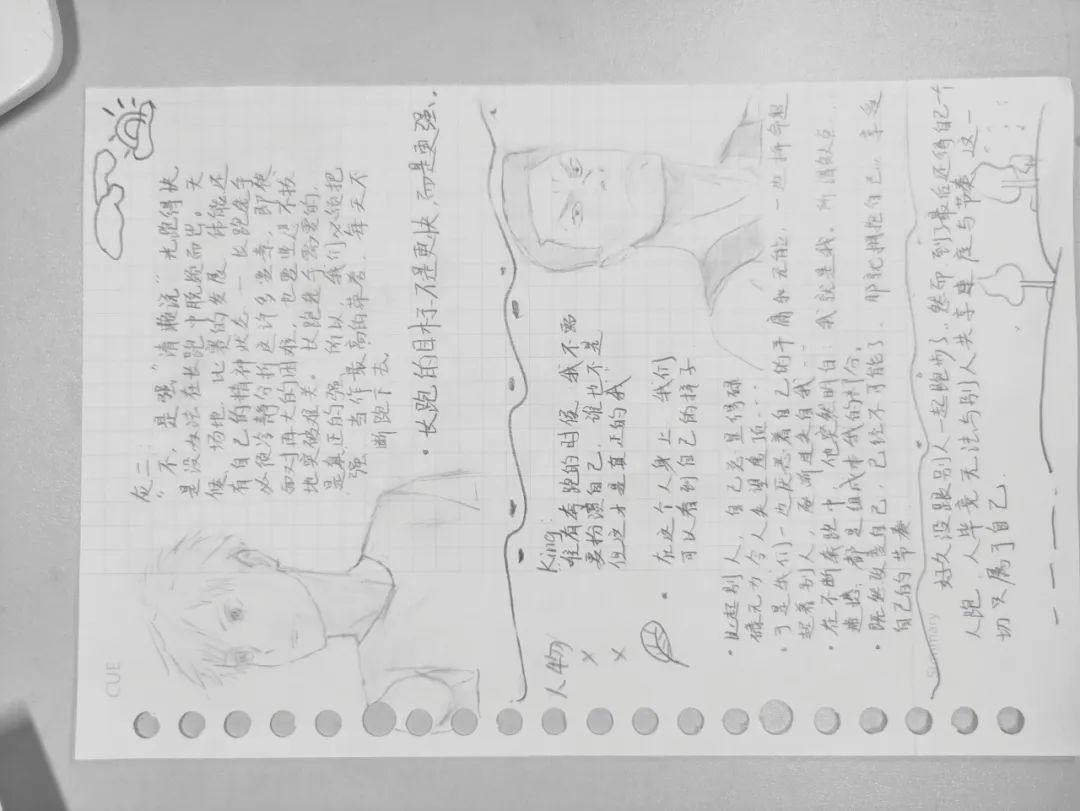 CUE
灰二：
"不，是强"清濑说"光跑得快
是没办法在长跑中脱颖而出。天
候、场地、比赛的发展、体能还
有自己的精神状态——长跑选手
必使冷静分析这许多要素，即使
面对再大的困难，也要坚忍不拔
地突破难关。长跑选手需要的，
是真正的强。所以，我们必须把
强当作最高的荣誉，每天不
断跑下去
·长跑的目标不是更快，而是更强。
人物
King：
唯有奔跑的时候，我不需
要扮演自己，谁也不是
但这才是真正的我
在这个人身上，我们
可以看到自己的样子
·比起别人，自己总显得碌
碌无为，令人失望透顶……
·于是我们一边厌恶着自己的平庸和无能，一边拼命追
起着别人，逐渐迷失自我…
·在不断奔跑中，他突然明白：我就是我。所谓缺点、
都是组成本我的部分。
·既然改变自己，已经不可能了，那就拥抱自己，享受
自己的节奏
Summary
好久没跟别人一起跑步了，然而到了最后还得自己一个
人跑。人毕竟无法与别人共享速度与节奏，这一
切只属于自己